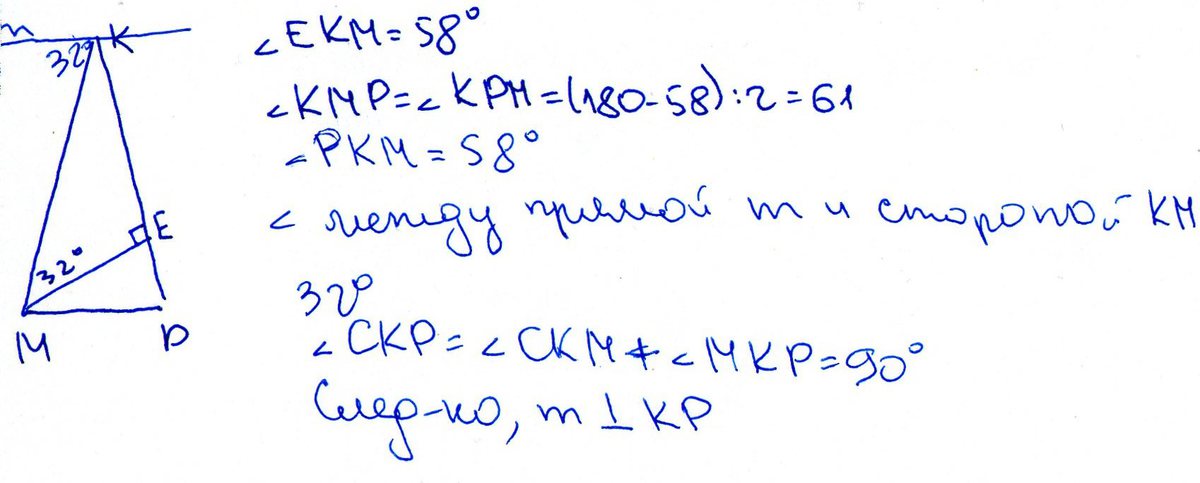 m K
32°
E
32°
M P
∠EKM=58°
∠KMP=∠KPM=(180-58):2=61
∠PKM=58°
∠ между прямой m и стороной KM
32°
∠CKP=∠CKM+∠MKP=90°
След-но, m⊥KP